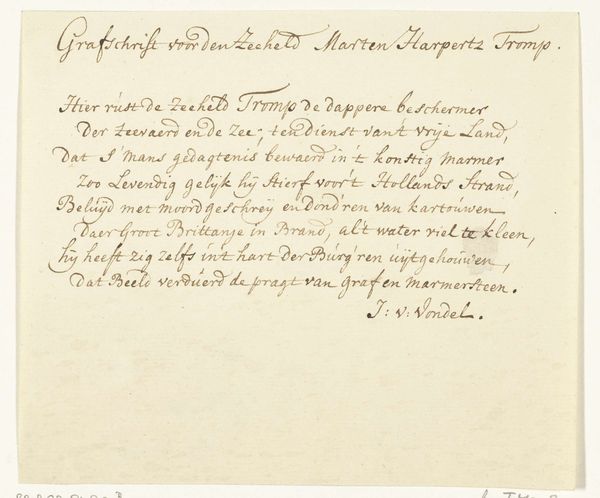 Grafschrift voor den Zeeheld Marten Harpertz Tromp.
Hier rúst de Zeeheld Tromp de dappere beschermer
Der Zeevaerd en de Zee; ten dienst van't vrije Land,
Dat s'Mans gedagtenis bewaerd in't konstig Marmer
Zoo Levendig gelijk hij Stierf voor't Hollands Strand,
Belúyd met moordgeschreÿ en dond'ren van kartoúwen
Daer Groot Brittanje in Brand, al't water viel te kleen,
hij heeft zig zelfs in't hart der Búrg'ren úijtgehoúwen,
dat Beeld verdúerd de pragt van Graf en Marmersteen.
J: v: Vondel.